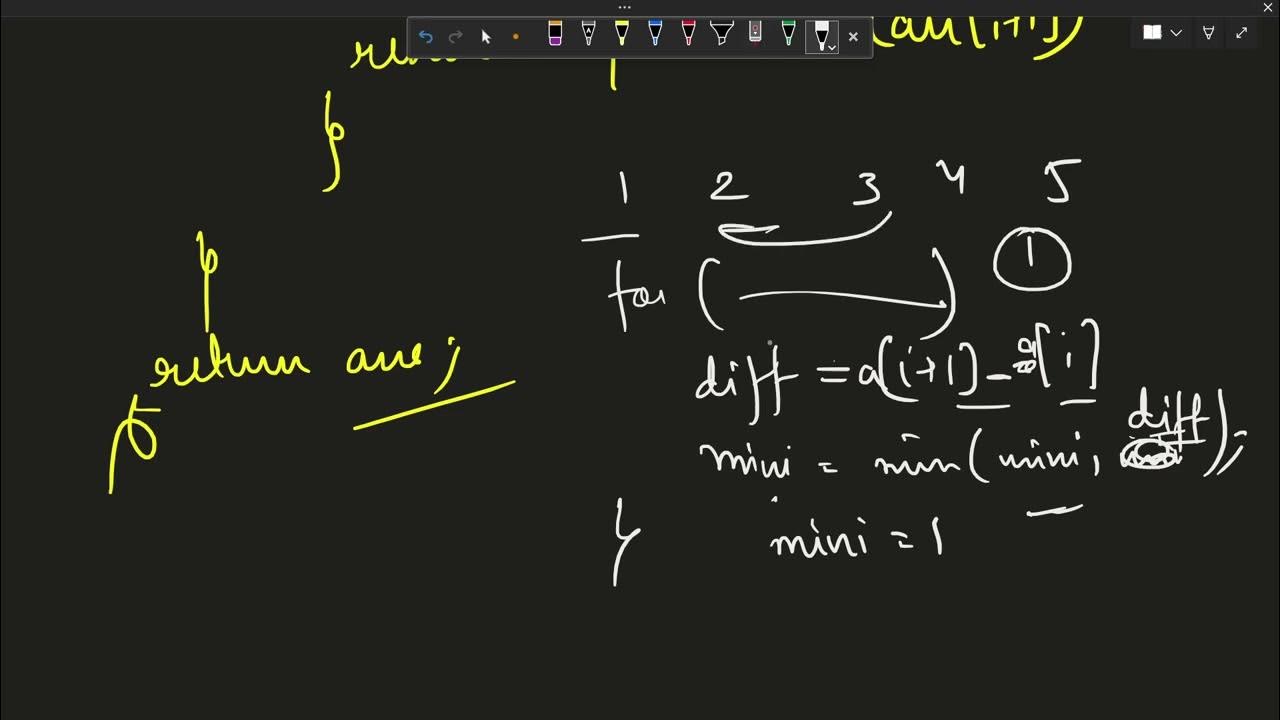 (arr[i+1])
}
1 2 3 4 5
for ( ) 1
}
diff = a[i+1] - a[i]
return ans;
diff
mini = min(mini, );
}
} mini = 1